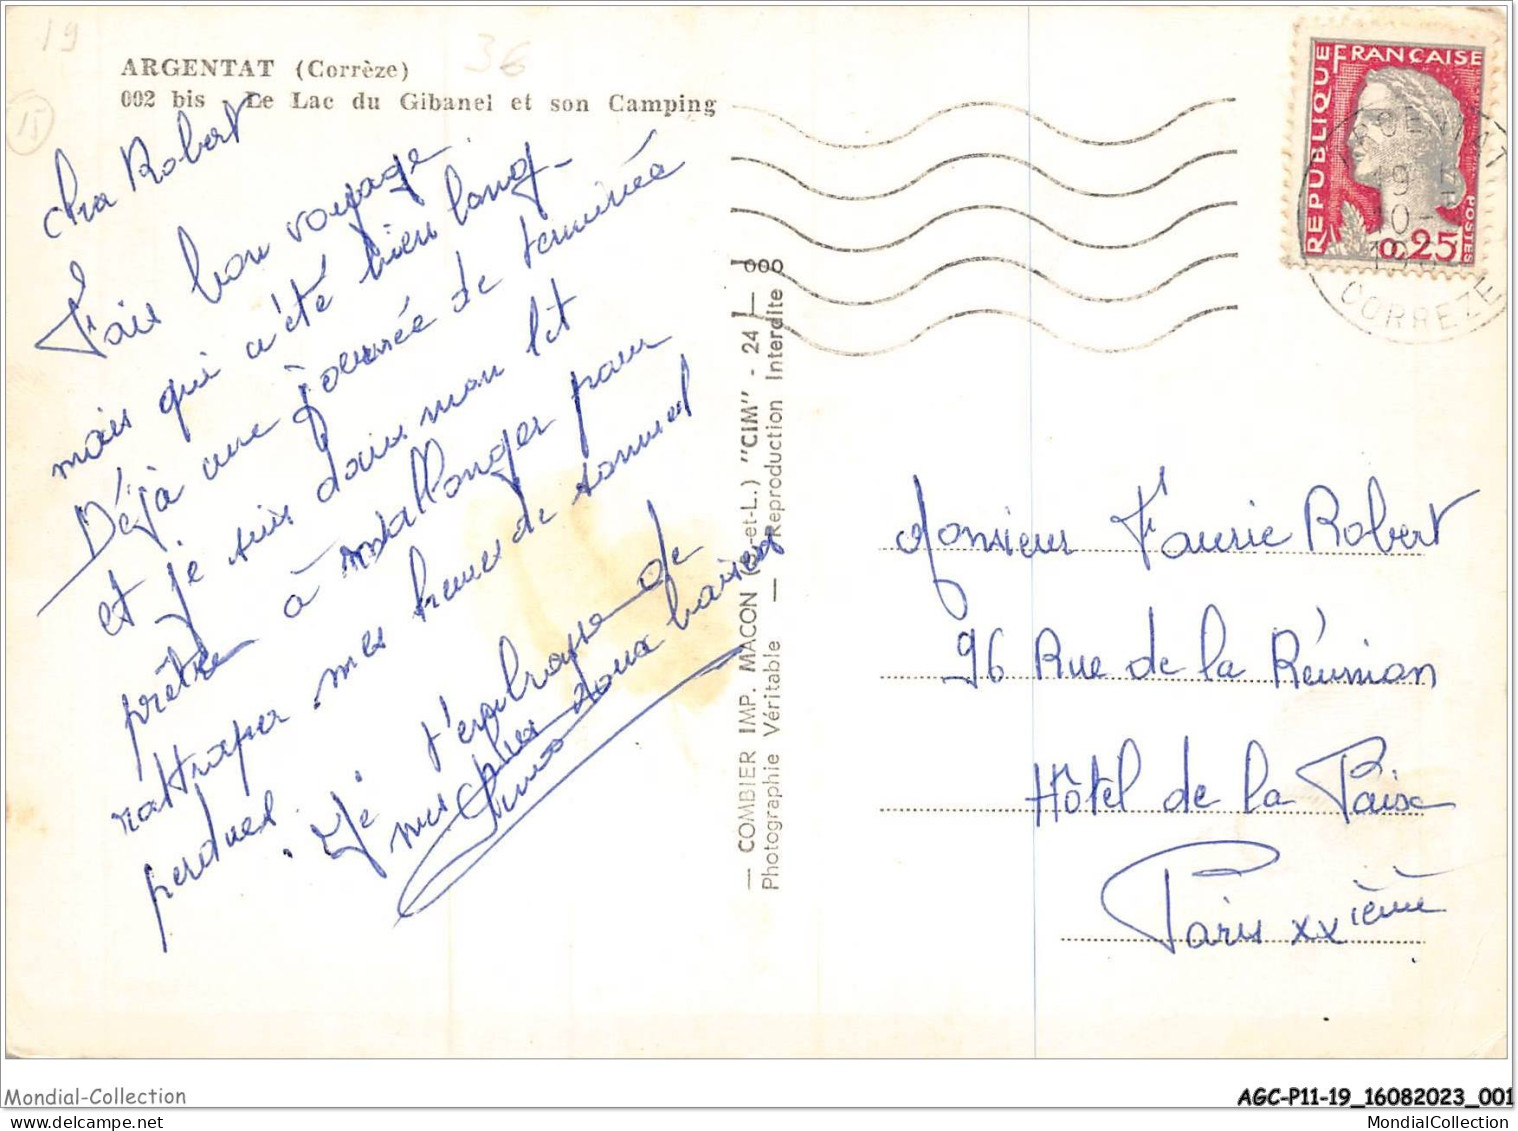 19
36
15
ARGENTAT (Corrèze)
002 bis - Le Lac du Gibanel et son Camping
Cher Robert
Fais bon voyage
mais qui a été bien long -
Déjà une journée de terminée
et je suis dans mon lit
prête à m'allonger pour
rattraper mes heures de sommeil
perdues.
Je t'embrasse de
mes plus doux baisers
— COMBIER IMP. MACON (S.-et-L.) "CIM" - 24 |— 000
Photographie Véritable — Reproduction Interdite
RÉPUBLIQUE FRANÇAISE
POSTES
0.25
ARGENTAT
19
10
CORREZE
Monsieur Faurie Robert
96 Rue de la Réunion
Hôtel de la Paix
Paris XXième
Mondial-Collection
AGC-P11-19_16082023_001
delcampe.net
MondialCollection